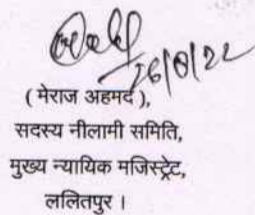 26/8/22
( मेराज अहमद ),
सदस्य नीलामी समिति,
मुख्य न्यायिक मजिस्ट्रेट,
ललितपुर ।